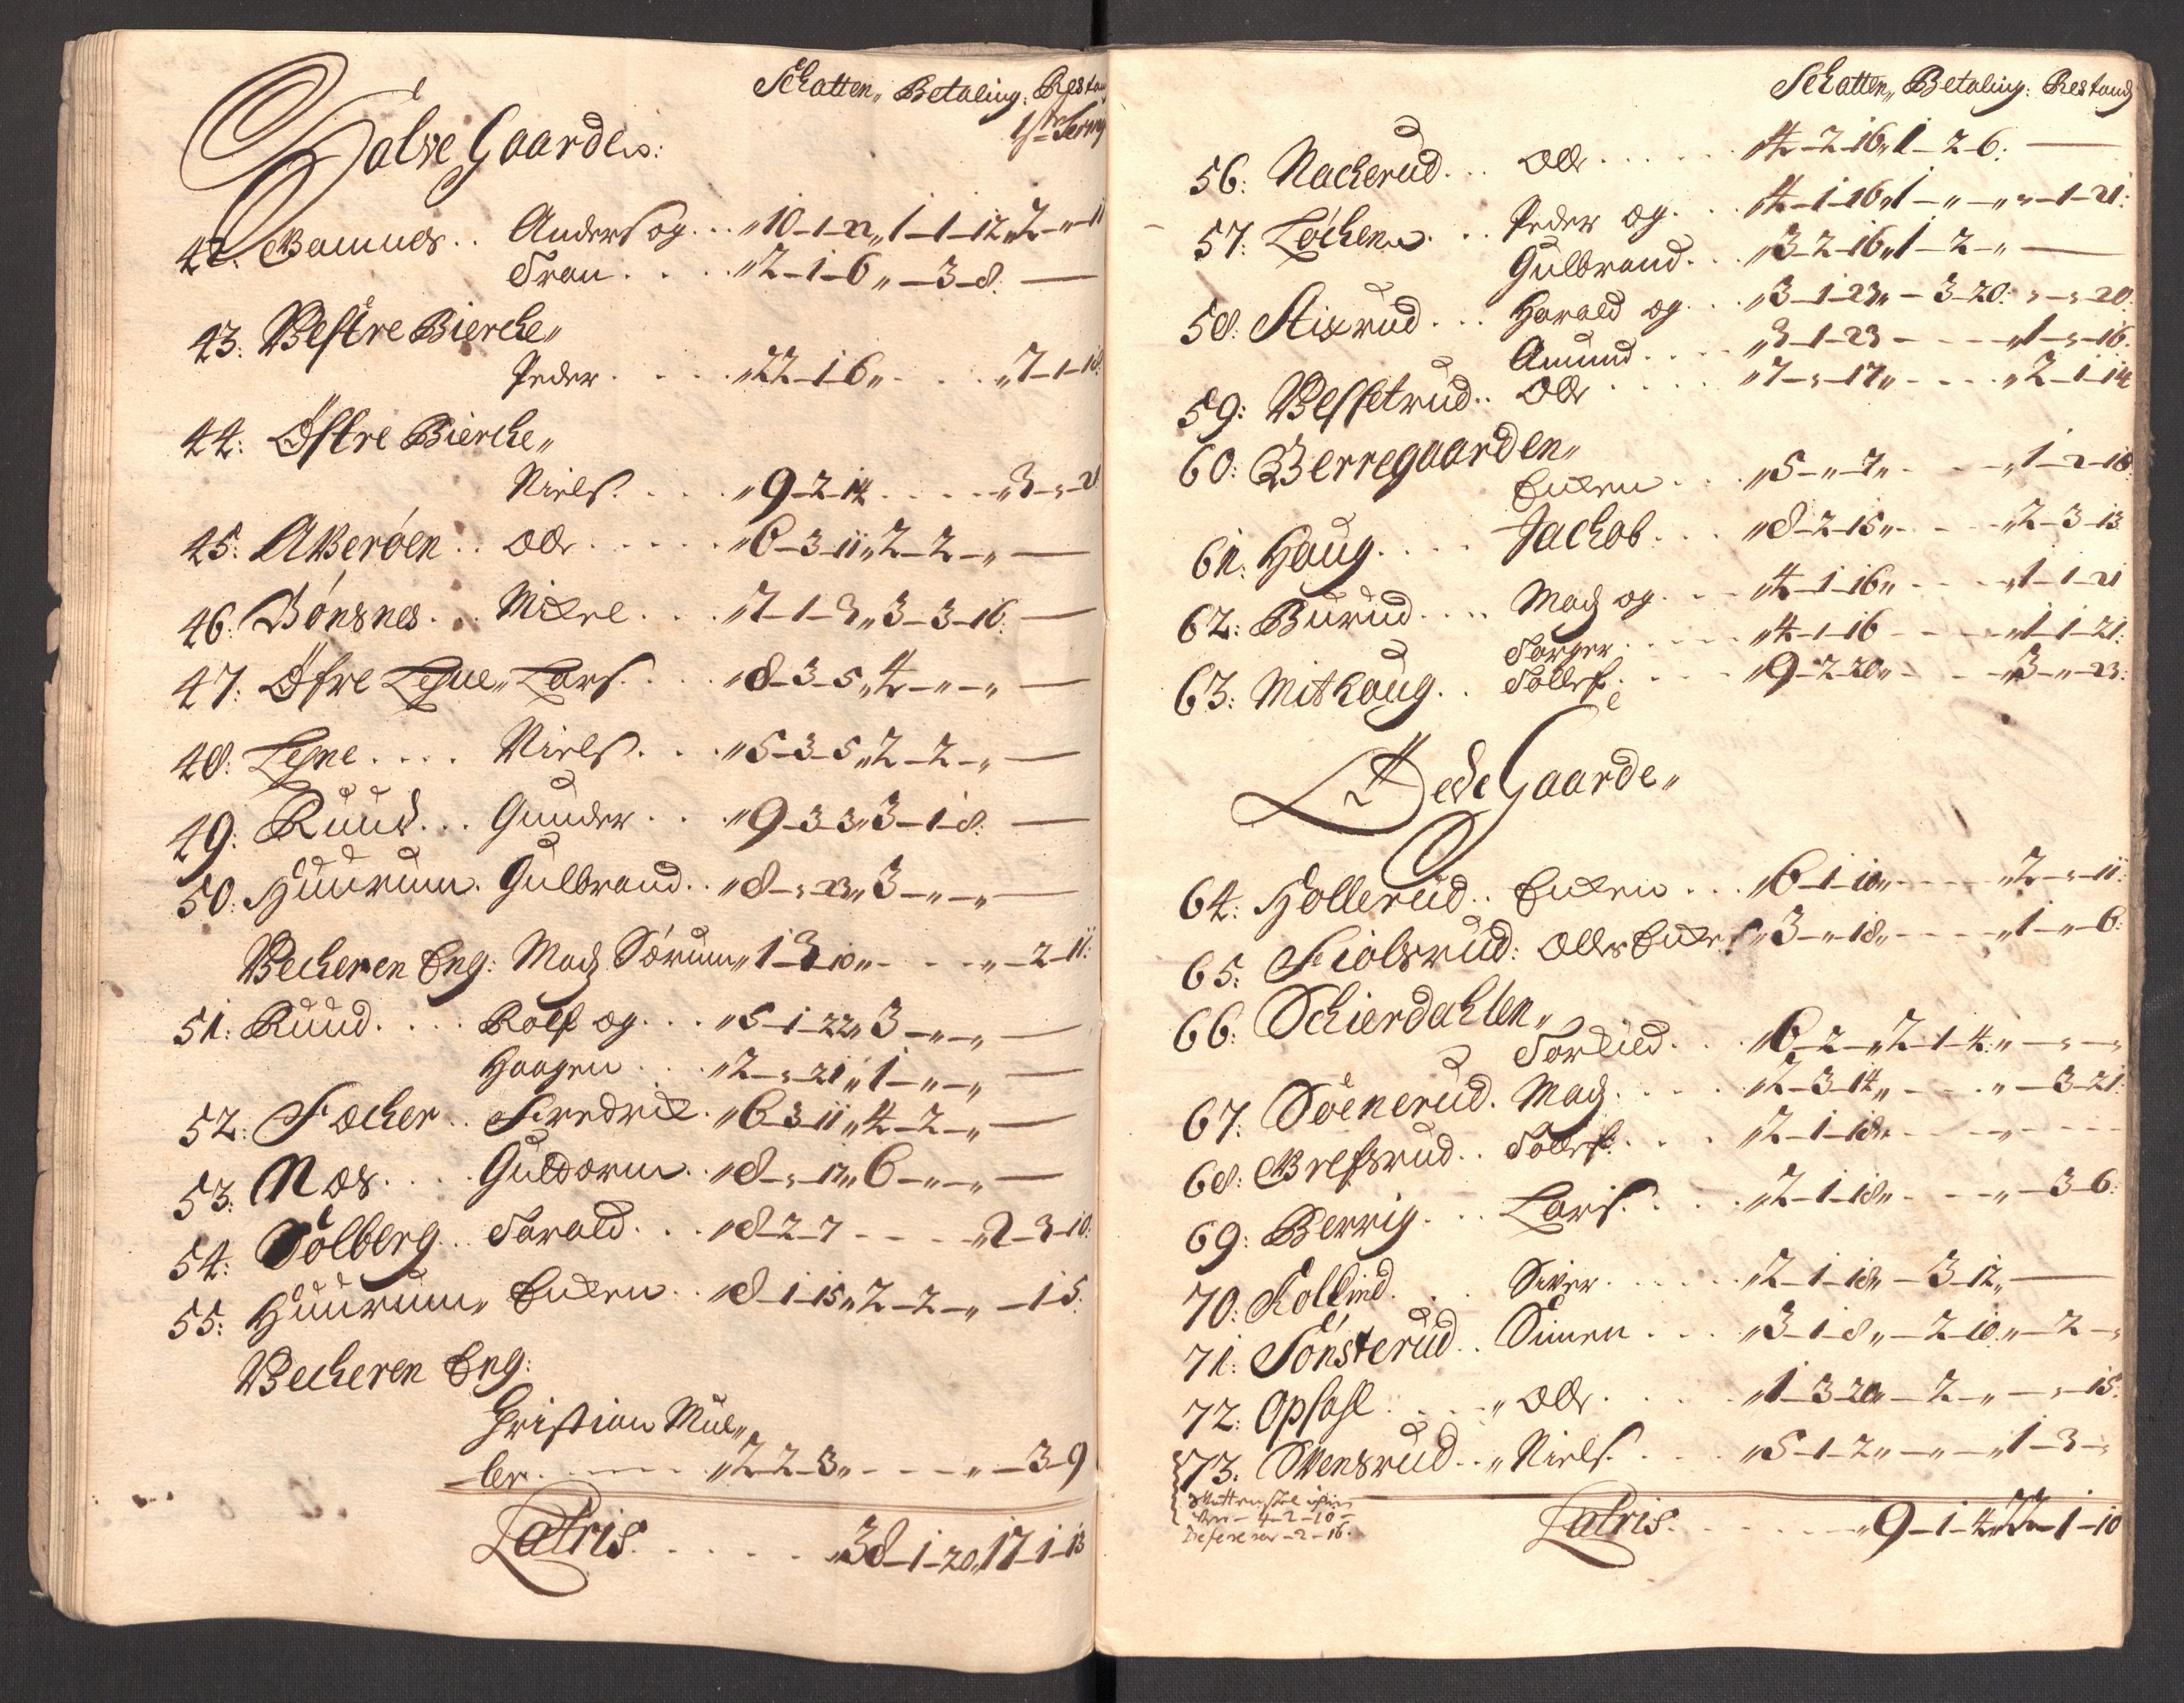 Schatten„ Betaling: Restan
1ste Termj
Halve Gaarder:
42: Bamnes .. Anders og ... „10-1-22„1-1-12„2-„-11
Tron .... „2-1-6„-3-8. —
43: Vestre Bierche„
Peder .... „22-1-6„ ... „7-1-18.
44: Østre Bierche„
Niels .... „9-2-14 ..... „3-„-21
45: Aβerøen .. Ole ..... „6-3-11„2-2-„ —
46: Bønsnes ... Mikel .... „7-1-3„3-3-16. —
47: Øfre Legne„ Lars .... „8-3-5„4-„-„ —
48: Legne .... Niels .... „5-3-5„2-2-„ —
49: Ruud ... Gunder ... „9-3-3„3-1-8. —
50: Huurum. Gulbrand .. „8-„-23„3-„-„ —
Becheren Eng: Mads Sørum„1-3-10„ .... „-2-11.
51: Ruud .... Rolf og ... „5-1-22„3-„-„ —
Haagen ... „2-„-21„1-„-„ —
52: Focher .. Fredrik. „6-3-11„4-2-„ —
53: Nøs .... Guldorm .. „8-„-17„6-„-„ —
54: Solberg .. Tarald ... „8-2-7 .... „2-3-10.
55: Huurum„ Enken .. „8-1-15„2-2-„ -1-5.
Becheren Eng:
Christian Mül„
ler ..... „2-2-3„ .... „-3-9
Latris ..... „38-1-20„17-1-13
Schatten„ Betaling: Restands
56: Nacherud ... Ole ...... „4-2-16„1-2-6. —
57: Løchen ... Peder og ... „4-1-16„1-„-„„-1-21.
Gulbrand ... „3-2-16„1-2-„ —
58: Stixrud ... Harald og ... „3-1-23„-3-20. „-„-20.
Amund .... „3-1-23 .... „1-„-16.
59: Besseterud .. Ole ..... „7-„-17„ .... „2-1-14
60: Berregaarden„
Enken ... „5-„-7„ .... „1-2-18.
61: Haug .... Jachob ... „8-2-15„ .... „2-3-13
62: Burud .... Mads og ... „4-1-16„ .... „1-1-21
Torger ..... „4-1-16 .... „1-1-21.
63: Mithoug .. Tollef .... „9-2-20„ .... „3-„-23.
Øde Gaarde„
64: Hollerud .. Enken ... „6-1-10„ ..... „2-„-11.
65: Fiolsrud: Oles Enke „3-„-18„ ..... „1-„-6.
66: Schierdahlen„
Torkild ... „6-2-„„2-1-4„-„-„
67: Søenerud. Mads .... „2-3-14„ .... „-3-21.
68: Brefsrud .. Tollef .... „2-1-18„ .... „- - -
69: Berrig ... Lars ... „2-1-18„ .... „-3-6.
70: Kollind. .. Siver ..... „2-1-18„-3-12„ —
71: Tønsterud .. Simen .... „3-1-8„-2-10„-2-„
72: Opsahl .... „Ole ..... „1-3-20„-2-„ -„-15.
73. Svensrud .. „Niels .... „5-1-2„-„-„1-3-„
- 4-2-10 -
-2-16.
Latris ...... „9-1-4„22-1-10